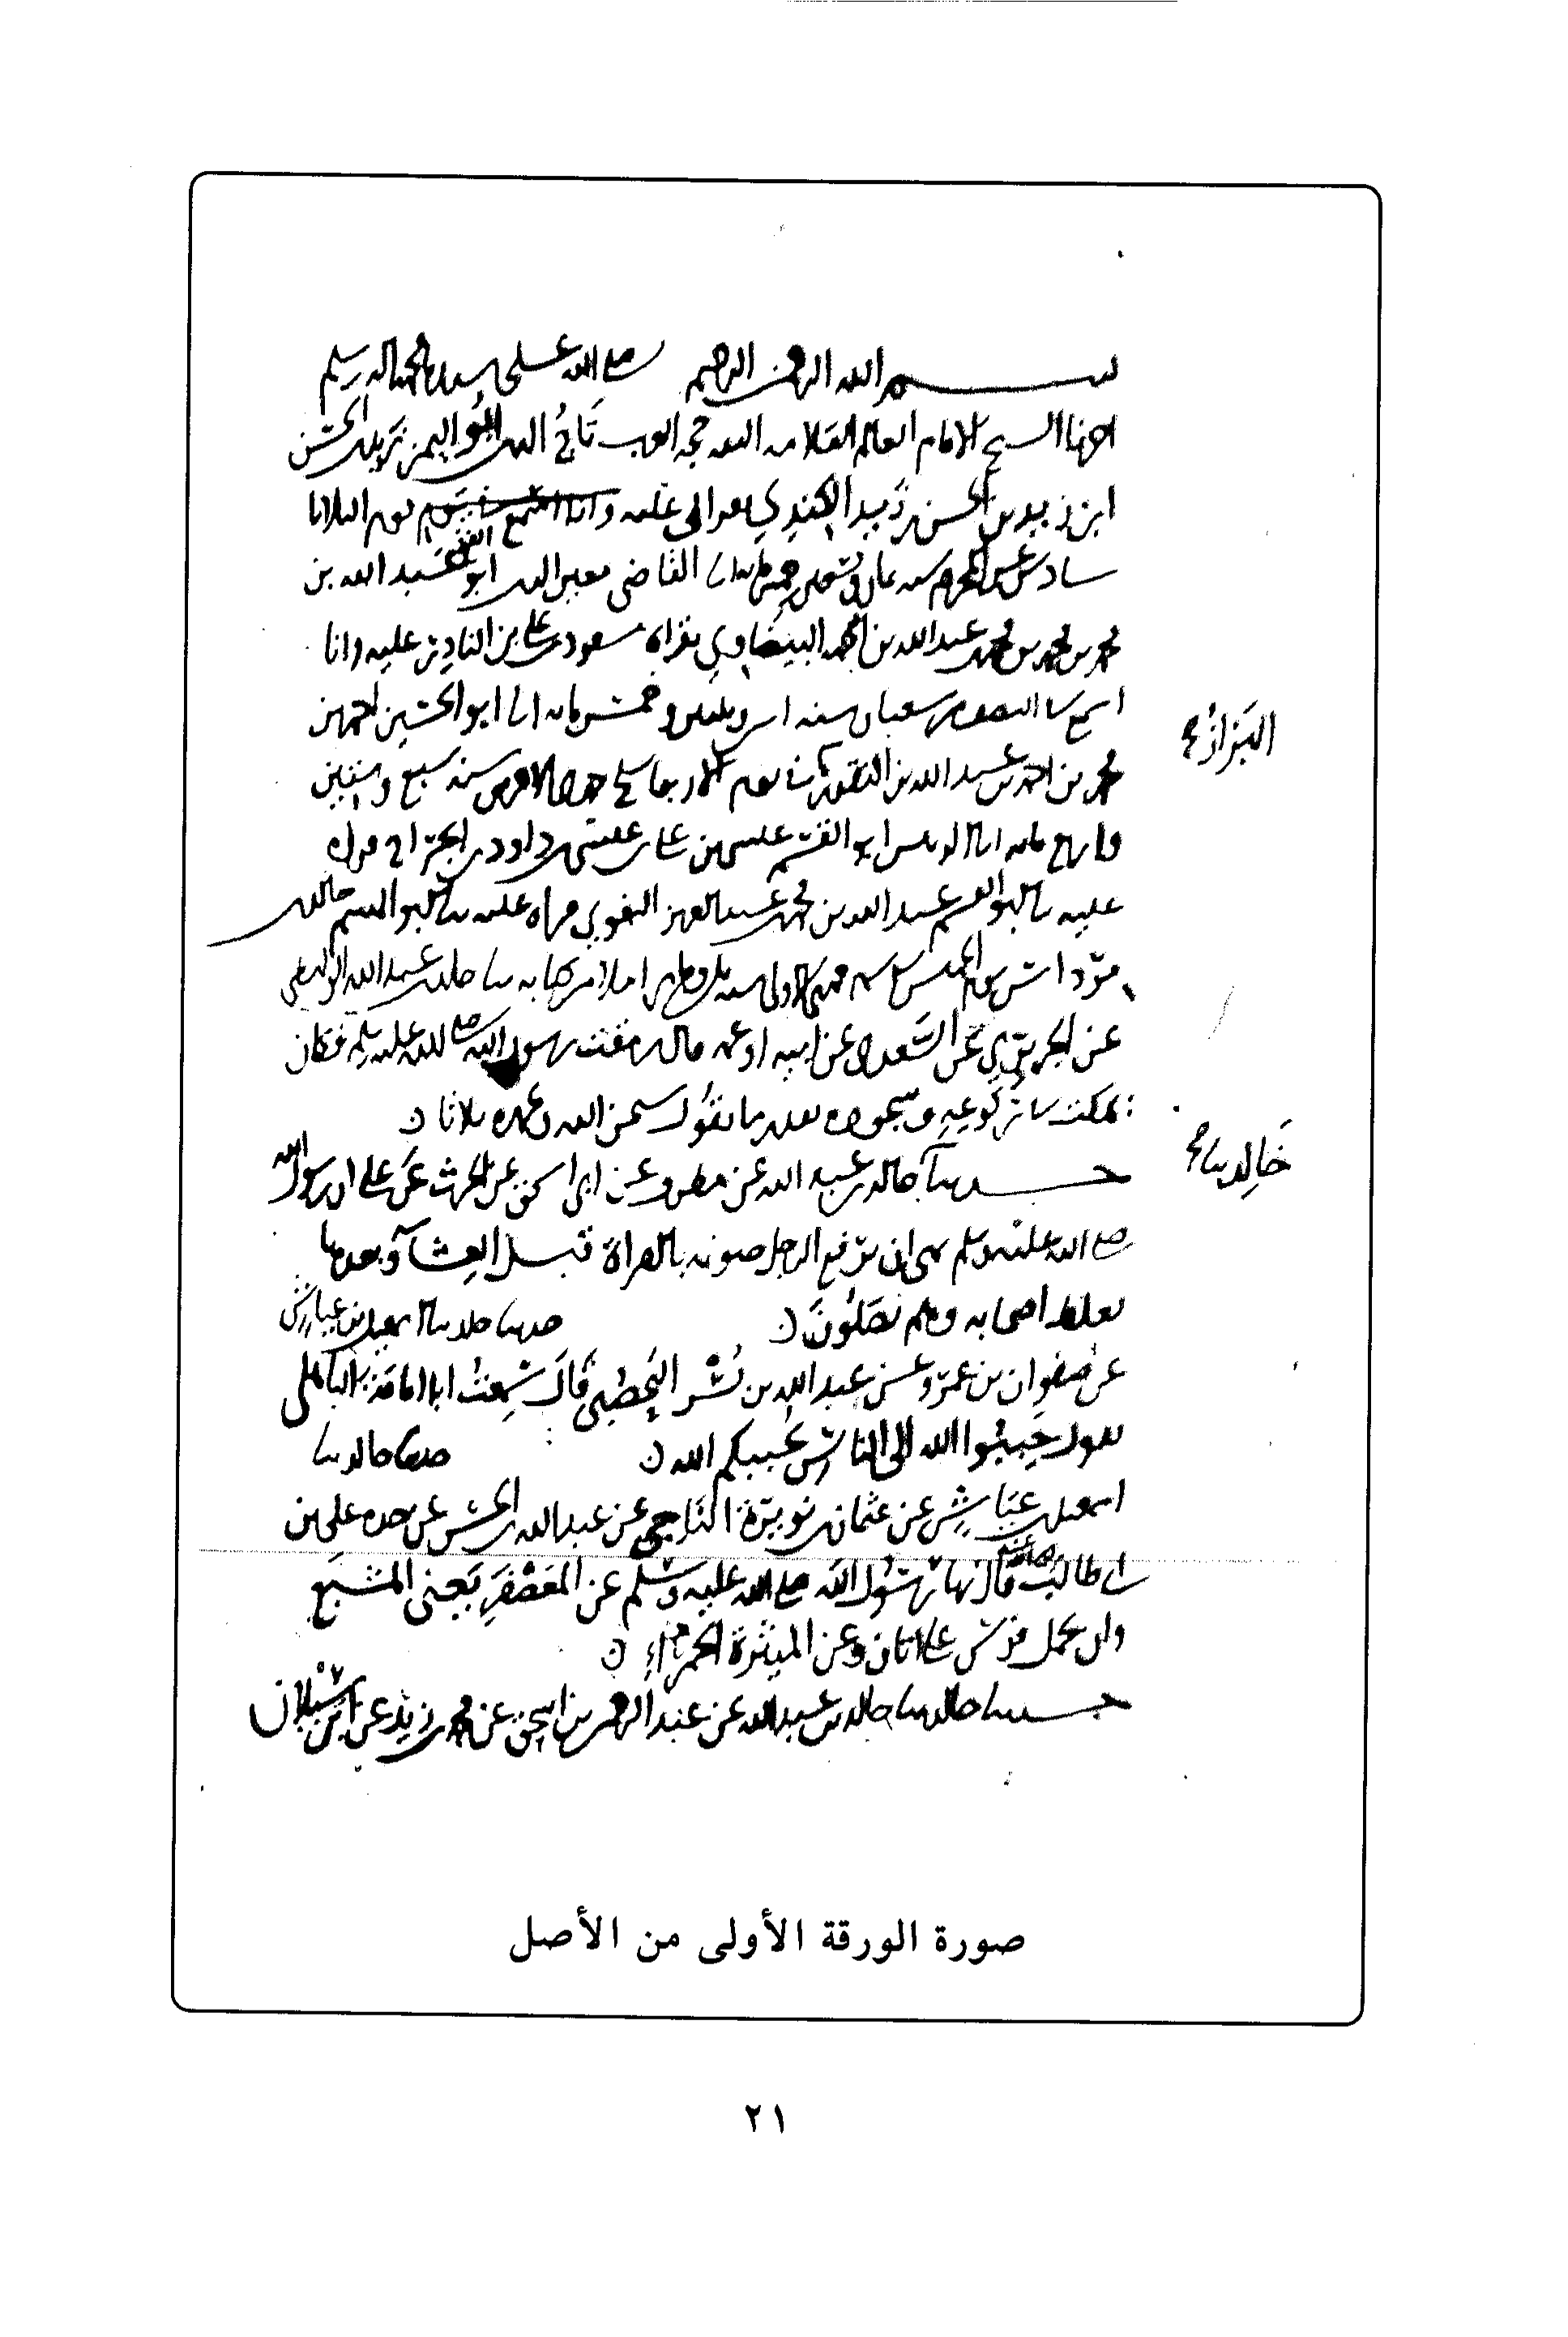 بسم الله الرحمن الرحيم صلى الله على سيدنا محمد وآله وسلم
اخبرنا الشيخ الامام العالم العلامه حجه العرب تاج الدين ابو اليمن زيد بن الحسن
ابن زيد بن الحسن بن زيد الكندي بقراتي عليه وانا اسمع يوم الثلاثا
سادس عشر المحرم سنه ثمان وتسعين وخمسمائة انا القاضي ابو عبد الله بن
محمد بن محمد بن محمد بن عبد الله بن احمد البيضاوي بقراة مسعود بن علي بن النادر عليه وانا
اسمع في النصف من شعبان سنه وثلثين وخمس مائه انا ابو الحسين احمد بن
البزاز صح
محمد بن احمد بن عبد الله بن النقور يوم الاربعا سنه سبع وستين
واربع مائه انا ابو القسم عيسى بن علي بن عيسى بن داود بن الجراح قراه
عليه نا ابو القسم عبد الله بن محمد بن عبد العزيز البغوي قراه عليه نا ابو الهيثم خالد بن
مرداس يوم الخميس املا من كتابه نا خالد بن عبد الله الواسطي
عن الجريري عن السعدي عن ابيه او عمه قال رمقت رسول الله صلى الله عليه وسلم فكان
يمكث في ركوعه وسجوده بقدر ما يقول سبحن الله وبحمده ثلاثا ن
خالد نا صح
حدثنا خالد بن عبد الله عن مطرف عن ابي اسحق عن الحرث عن علي ان رسول الله
صلى الله عليه وسلم نهى ان يرفع الرجل صوته بالقراة قبل العشآ وبعدها
يغلط اصحابه وهم يصلون ن حدثنا خالد نا اسمعيل بن عياش
عن صفوان بن عمرو عن عبد الله بن بسر اليحصبي قال سمعت ابا امامة الباهلي
يقول حببوا الله الى الناس يحببكم الله ن حدثنا خالد نا
اسمعيل بن عياش عن عثمان بن نويرة الناجي عن عبد الله بن الحسن عن جده علي بن
ابي طالب قال نهانا رسول الله صلى الله عليه وسلم عن المعصفر يعني المشبع
وان يحمل فرس على اتان وعن الميثرة الحمراء ن
حدثنا خالد نا خالد بن عبد الله عن عبد الرحمن بن اسحق عن محمد بن زيد عن ابن سيلان
صورة الورقة الأولى من الأصل
٢١